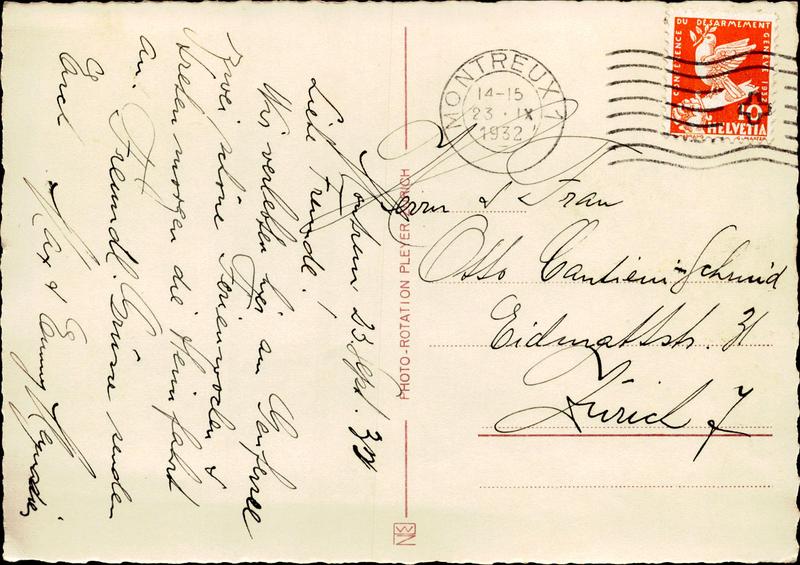 Montreux 23 Sept. 32
Lieb. Freunde!
Wir verlebten hier am Genfersee
zwei schöne Ferienwochen &
treten morgen die Heimfahrt
an. Freundl. Grüsse senden
Euch
Max & Emmy
MONTREUX 1
14-15
23·IX
1932
CONFERENCE DU DESARMEMENT GENEVE 1932
10
HELVETIA
Herrn & Frau
Otto Cantieni-Schmid
Eidmattstr. 31
Zürich 7
PHOTO-ROTATION PLEYER ZÜRICH